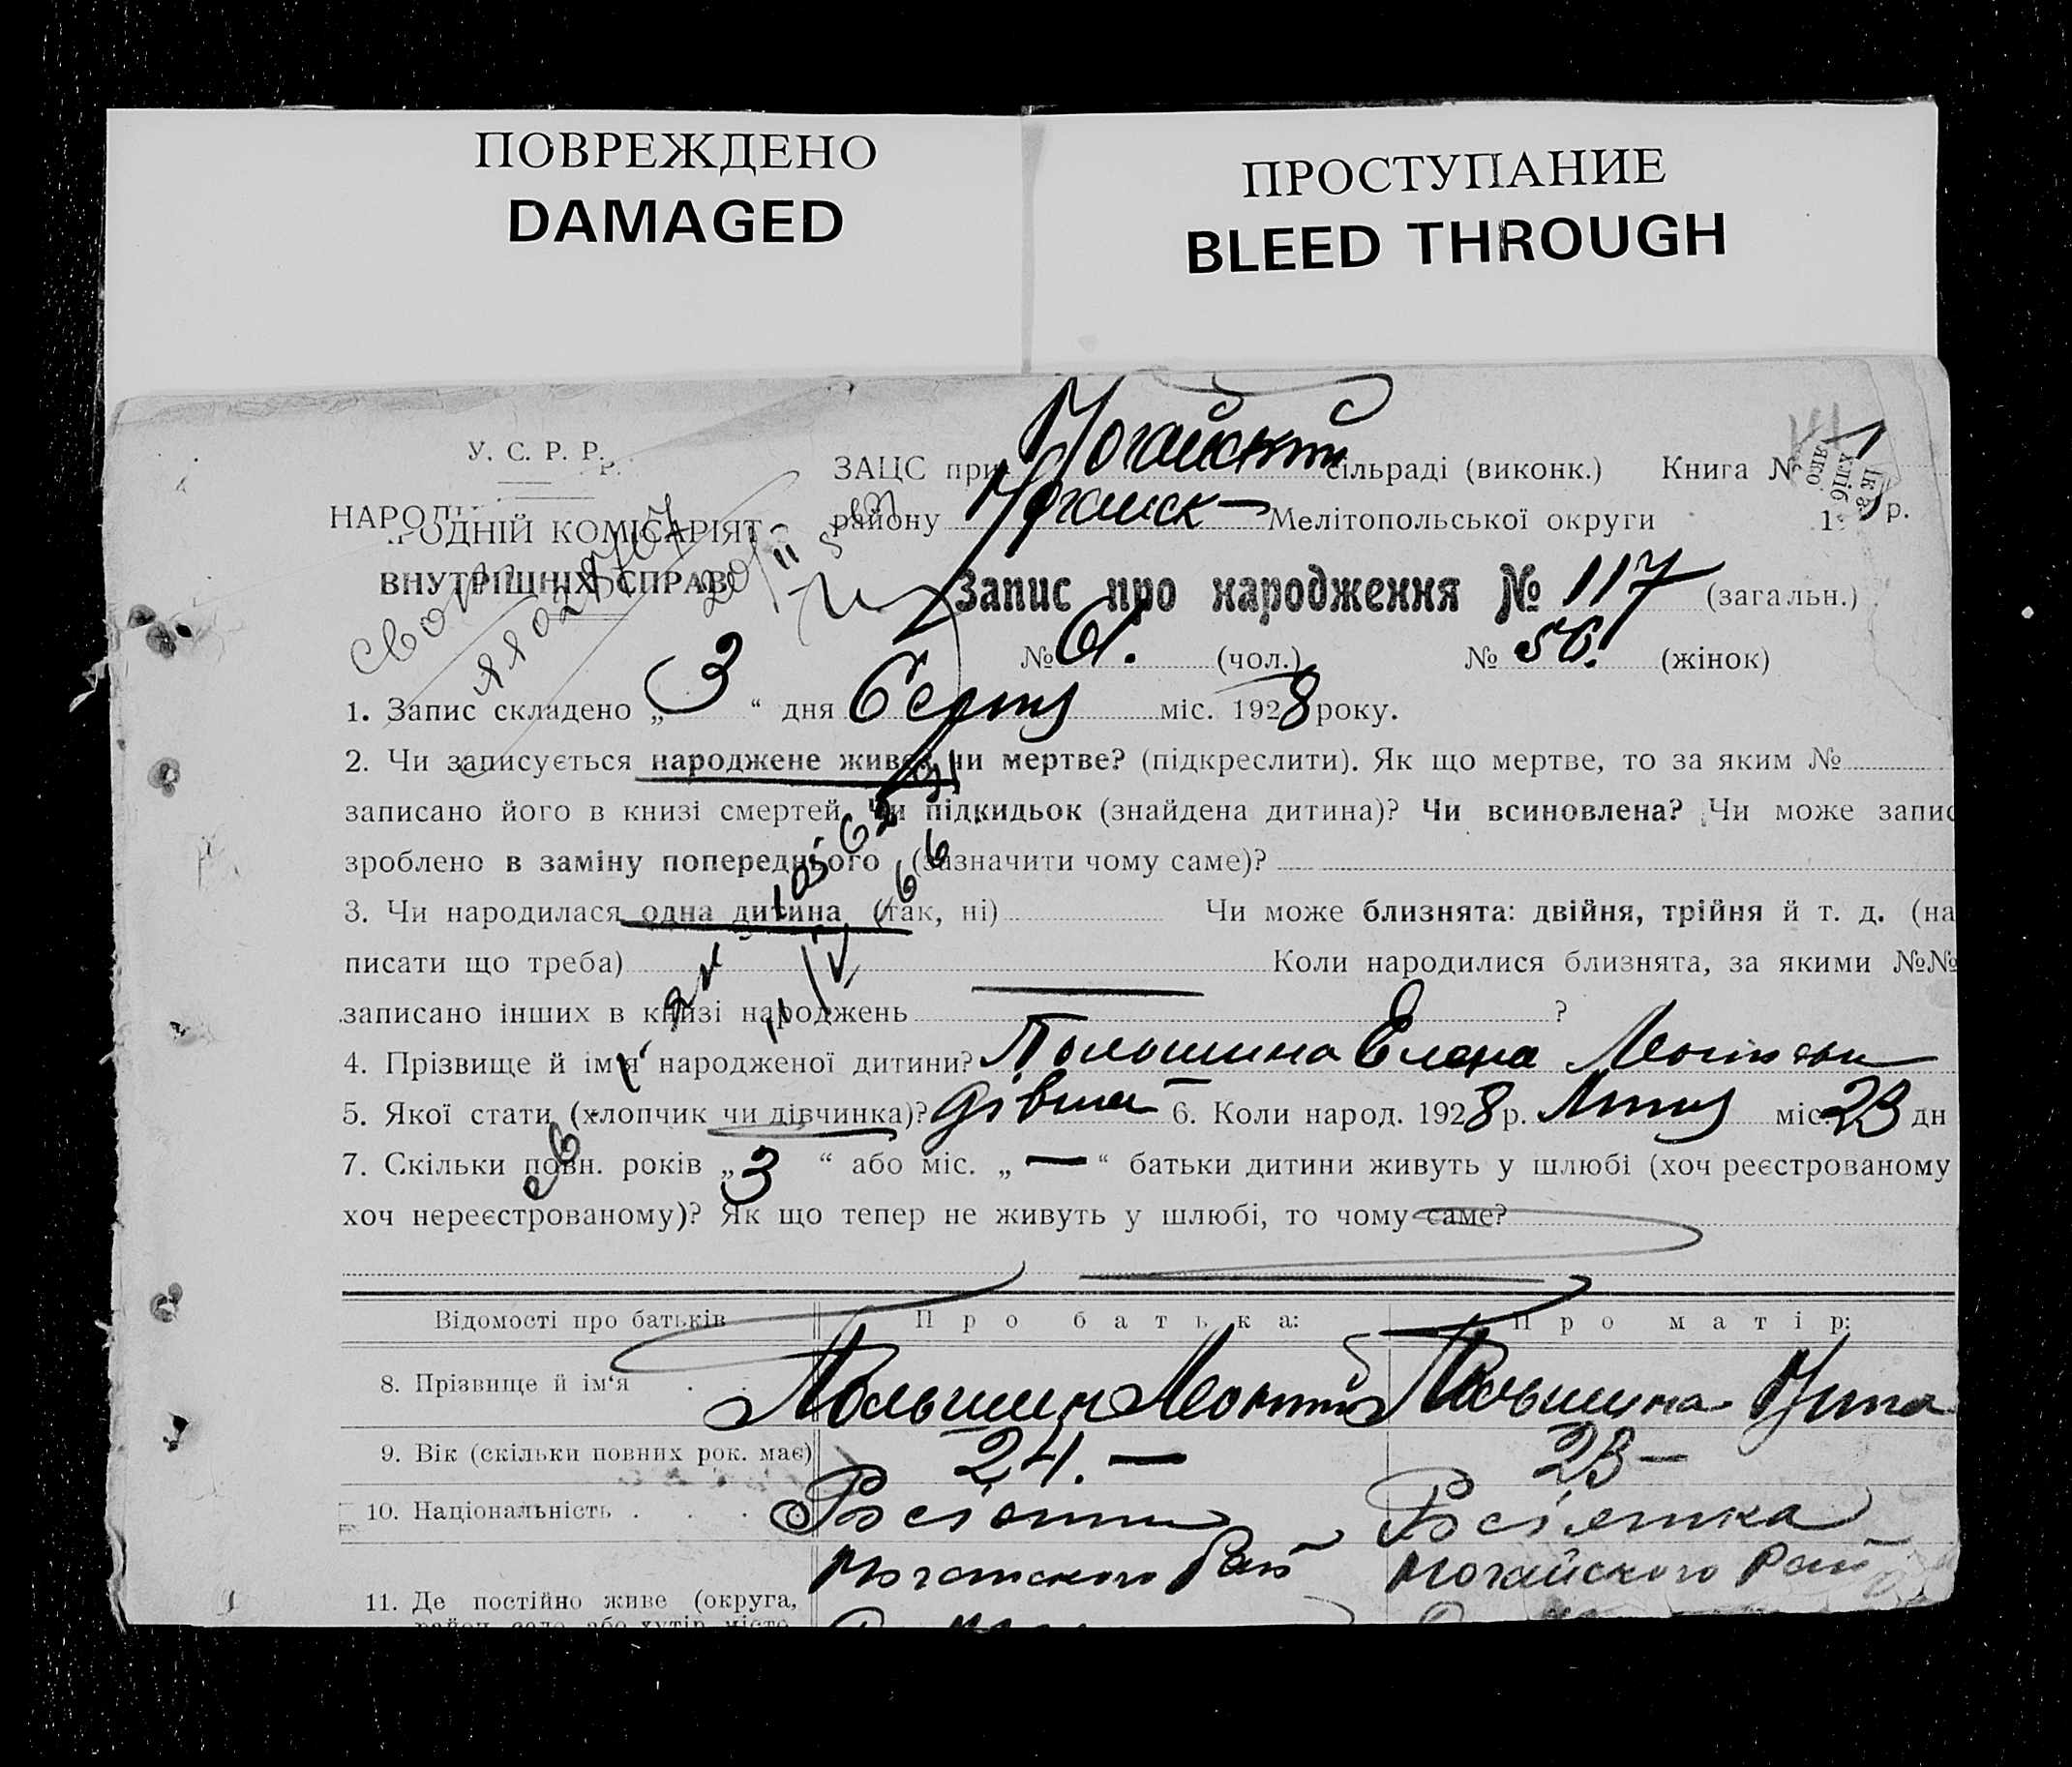 ПОВРЕЖДЕНО
DAMAGED
ПРОСТУПАНИЕ
BLEED THROUGH
У. С. Р. Р.
НАРОДНІЙ КОМІСАРІЯТ
ВНУТРІШНІХ СПРАВ
ЗАЦС при Ногайскій сільраді (виконк.) Книга №
району Ногайск Мелітопольської округи р.
Запис про народження № 117 (загальн.)
№ 61. (чол.) № 56. (жінок)
1. Запис складено „ 3 “ дня Серпня міс. 1928 року.
2. Чи записується народжене живе, чи мертве? (підкреслити). Як що мертве, то за яким №
записано його в книзі смертей. Чи підкидьок (знайдена дитина)? Чи всиновлена? Чи може запис
зроблено в заміну попереднього (зазначити чому саме)?
3. Чи народилася одна дитина (так, ні) Чи може близнята: двійня, трійня й т. д. (на
писати що треба) Коли народилися близнята, за якими №№
записано інших в книзі народжень ?
4. Прізвище й ім‘я народженої дитини? Польшина Елена
5. Якої стати (хлопчик чи дівчинка)? дівчат 6. Коли народ. 1928 р. Липня міс. 23 дн
7. Скільки повн. років „ 3 “ або міс. „ — “ батьки дитини живуть у шлюбі (хоч реєстрованому
хоч нереєстрованому)? Як що тепер не живуть у шлюбі, то чому саме?
Відомості про батьків Про батька: Про матір:
8. Прізвище й ім‘я . . Польшин Леонтій Польшина
9. Вік (скільки повних рок. має) 24. — 23 —
10. Національність . . . Росіянин Росіянка
Ногайского Рай Ногайского Рай
11. Де постійно живе (округа,
район, село, або хутір, місто